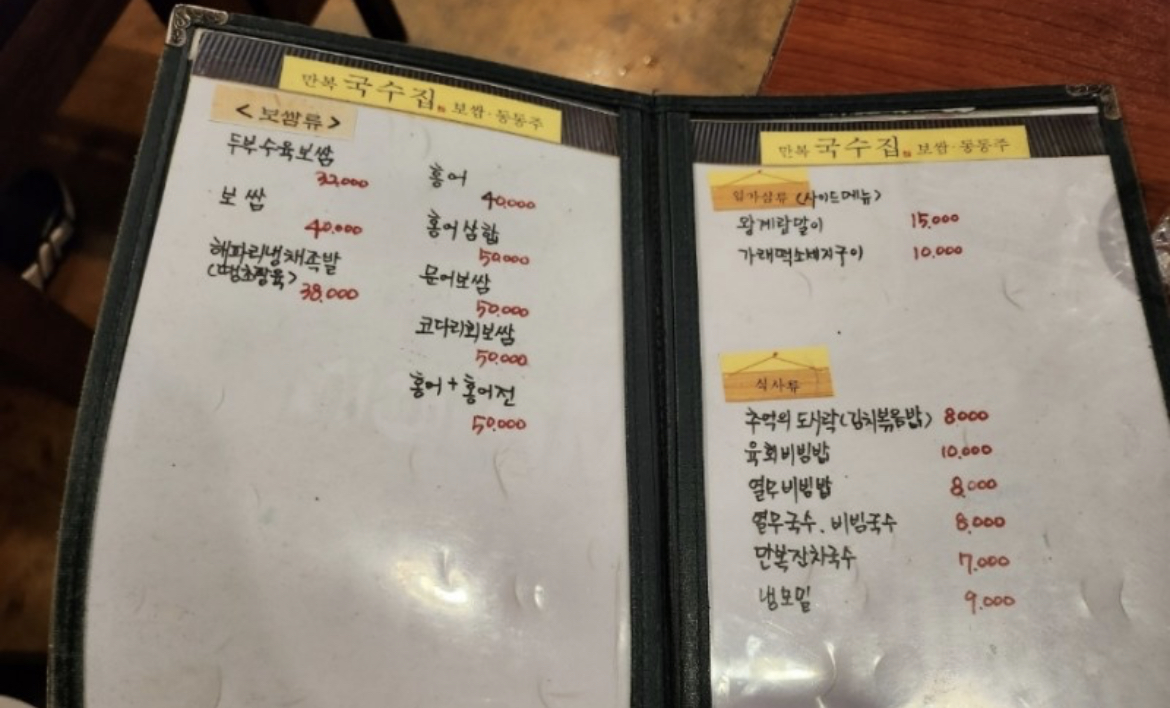 만복 국수집 보쌈·동동주
<보쌈류>
두부수육보쌈
32,000
보쌈
40.000
해파리냉채족발
(땡초짱육)
38.000
홍어
40,000
홍어삼합
50.000
문어보쌈
50.000
코다리회보쌈
50.000
홍어+홍어전
50.000
만복 국수집 보쌈·동동주
입가심류 (사이드메뉴)
왕계란말이 15.000
가래떡소세지구이 10.000
식사류
추억의 도시락(김치볶음밥) 8000
육회비빔밥 10.000
열무비빔밥 8.000
열무국수. 비빔국수 8.000
만복잔치국수 7.000
냉모밀 9.000